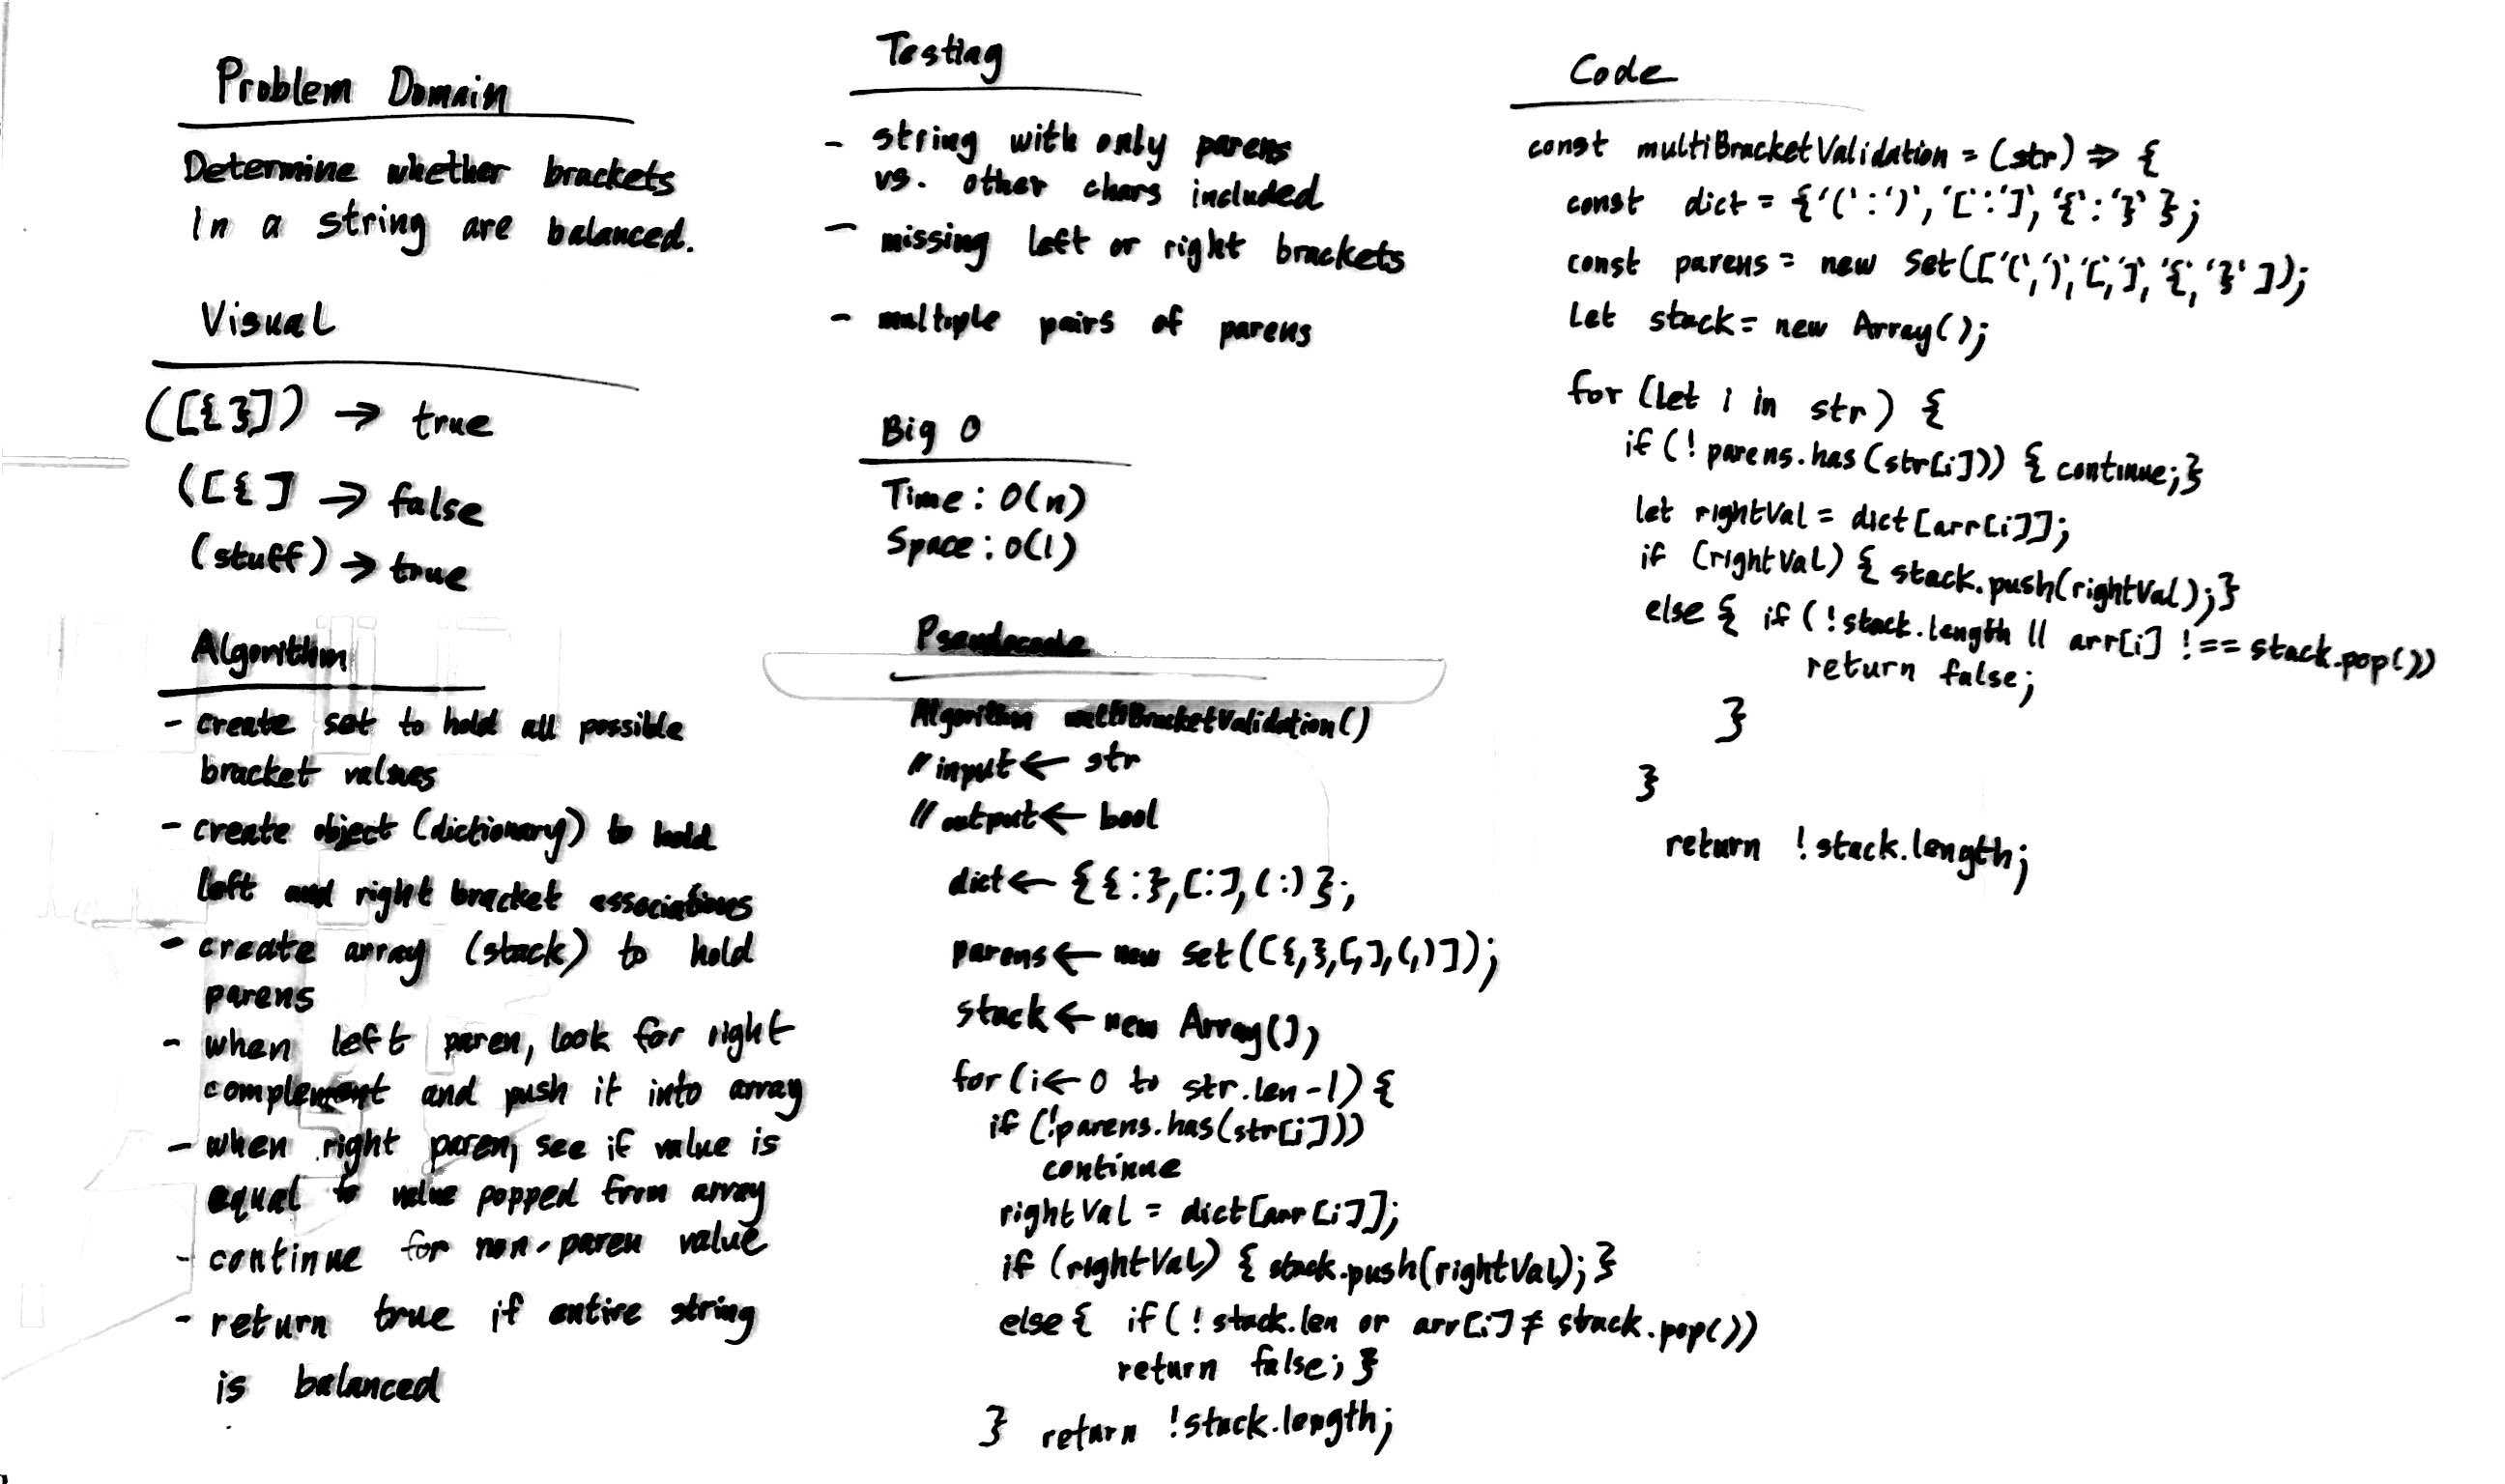 Problem Domain
Determine whether brackets
in a string are balanced.
Visual
([{}]) → true
([{] → false
(stuff) → true
Algorithm
- create set to hold all possible
bracket values
- create object (dictionary) to hold
left and right bracket associations
- create array (stack) to hold
parens
- when left paren, look for right
complement and push it into array
- when right paren, see if value is
equal to value popped from array
- continue for non-paren value
- return true if entire string
is balanced
Testing
- string with only parens
vs. other chars included
- missing left or right brackets
- multiple pairs of parens
Big O
Time: O(n)
Space: O(1)
Pseudocode
Algorithm multiBracketValidation()
// input ← str
// output ← bool
dict ← { {:}, [:], (:) };
parens ← new set([{,},[,],(,)]);
stack ← new Array();
for (i ← 0 to str.len -1) {
if (!parens.has(str[i]))
continue
rightVal = dict[arr[i]];
if (rightVal) { stack.push(rightVal); }
else { if (! stack.len or arr[i] ≠ stack.pop())
return false; }
} return !stack.length;
Code
const multiBracketValidation = (str) => {
const dict = {'(':')', '[':']', '{':'}' };
const parens = new Set(['(',')','[',']','{','}']);
let stack = new Array();
for (let i in str) {
if (! parens.has(str[i])) { continue; }
let rightVal = dict[arr[i]];
if (rightVal) { stack.push(rightVal); }
else { if (!stack.length || arr[i] !== stack.pop())
return false;
}
}
return !stack.length;